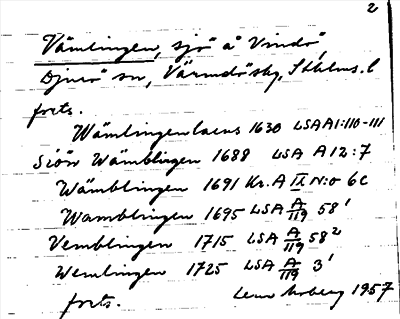 2
Vämlingen, sjö å Vindö,
Djurö sn, Värmdö skg, Sthlms. l
forts.
Wämlingen lacus 1630 LSA A1:110-111
Siön Wämblingen 1688 LSA A 12:7
Wämblingen 1691 Kr. A IX N:o 6c
Wamblingen 1695 LSA A/119 58¹
Vemblingen 1715 LSA A/119 58²
Wemlingen 1725 LSA A/119 3¹
forts. Moberg 1957